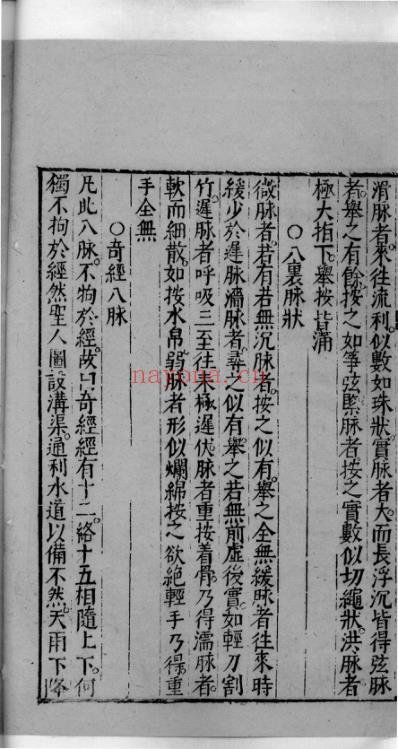 滑脉者來徃流利似數如珠狀實脉者大而長浮沉皆得弦脉
者舉之有餘按之如箏弦緊脉者按之實數似切繩狀洪脉者
極大指下舉按皆滿
○八裏脉狀
微脉者若有若無沉脉者按之似有舉之全無緩脉者徃來時
緩少於遲脉濇脉者尋之似有舉之若無前虛後實如輕刀割
竹遲脉者呼吸三至徃來極遲伏脉者重按着骨乃得濡脉者
軟而細散如按水帛弱脉者形似爛綿按之欲絕輕手乃得重
手全無
○奇經八脉
凡此八脉不拘於經故曰奇經經有十二絡十五相隨上下何
獨不拘於經然聖人圖設溝渠通利水道以備不然天雨下降
nayona.cn